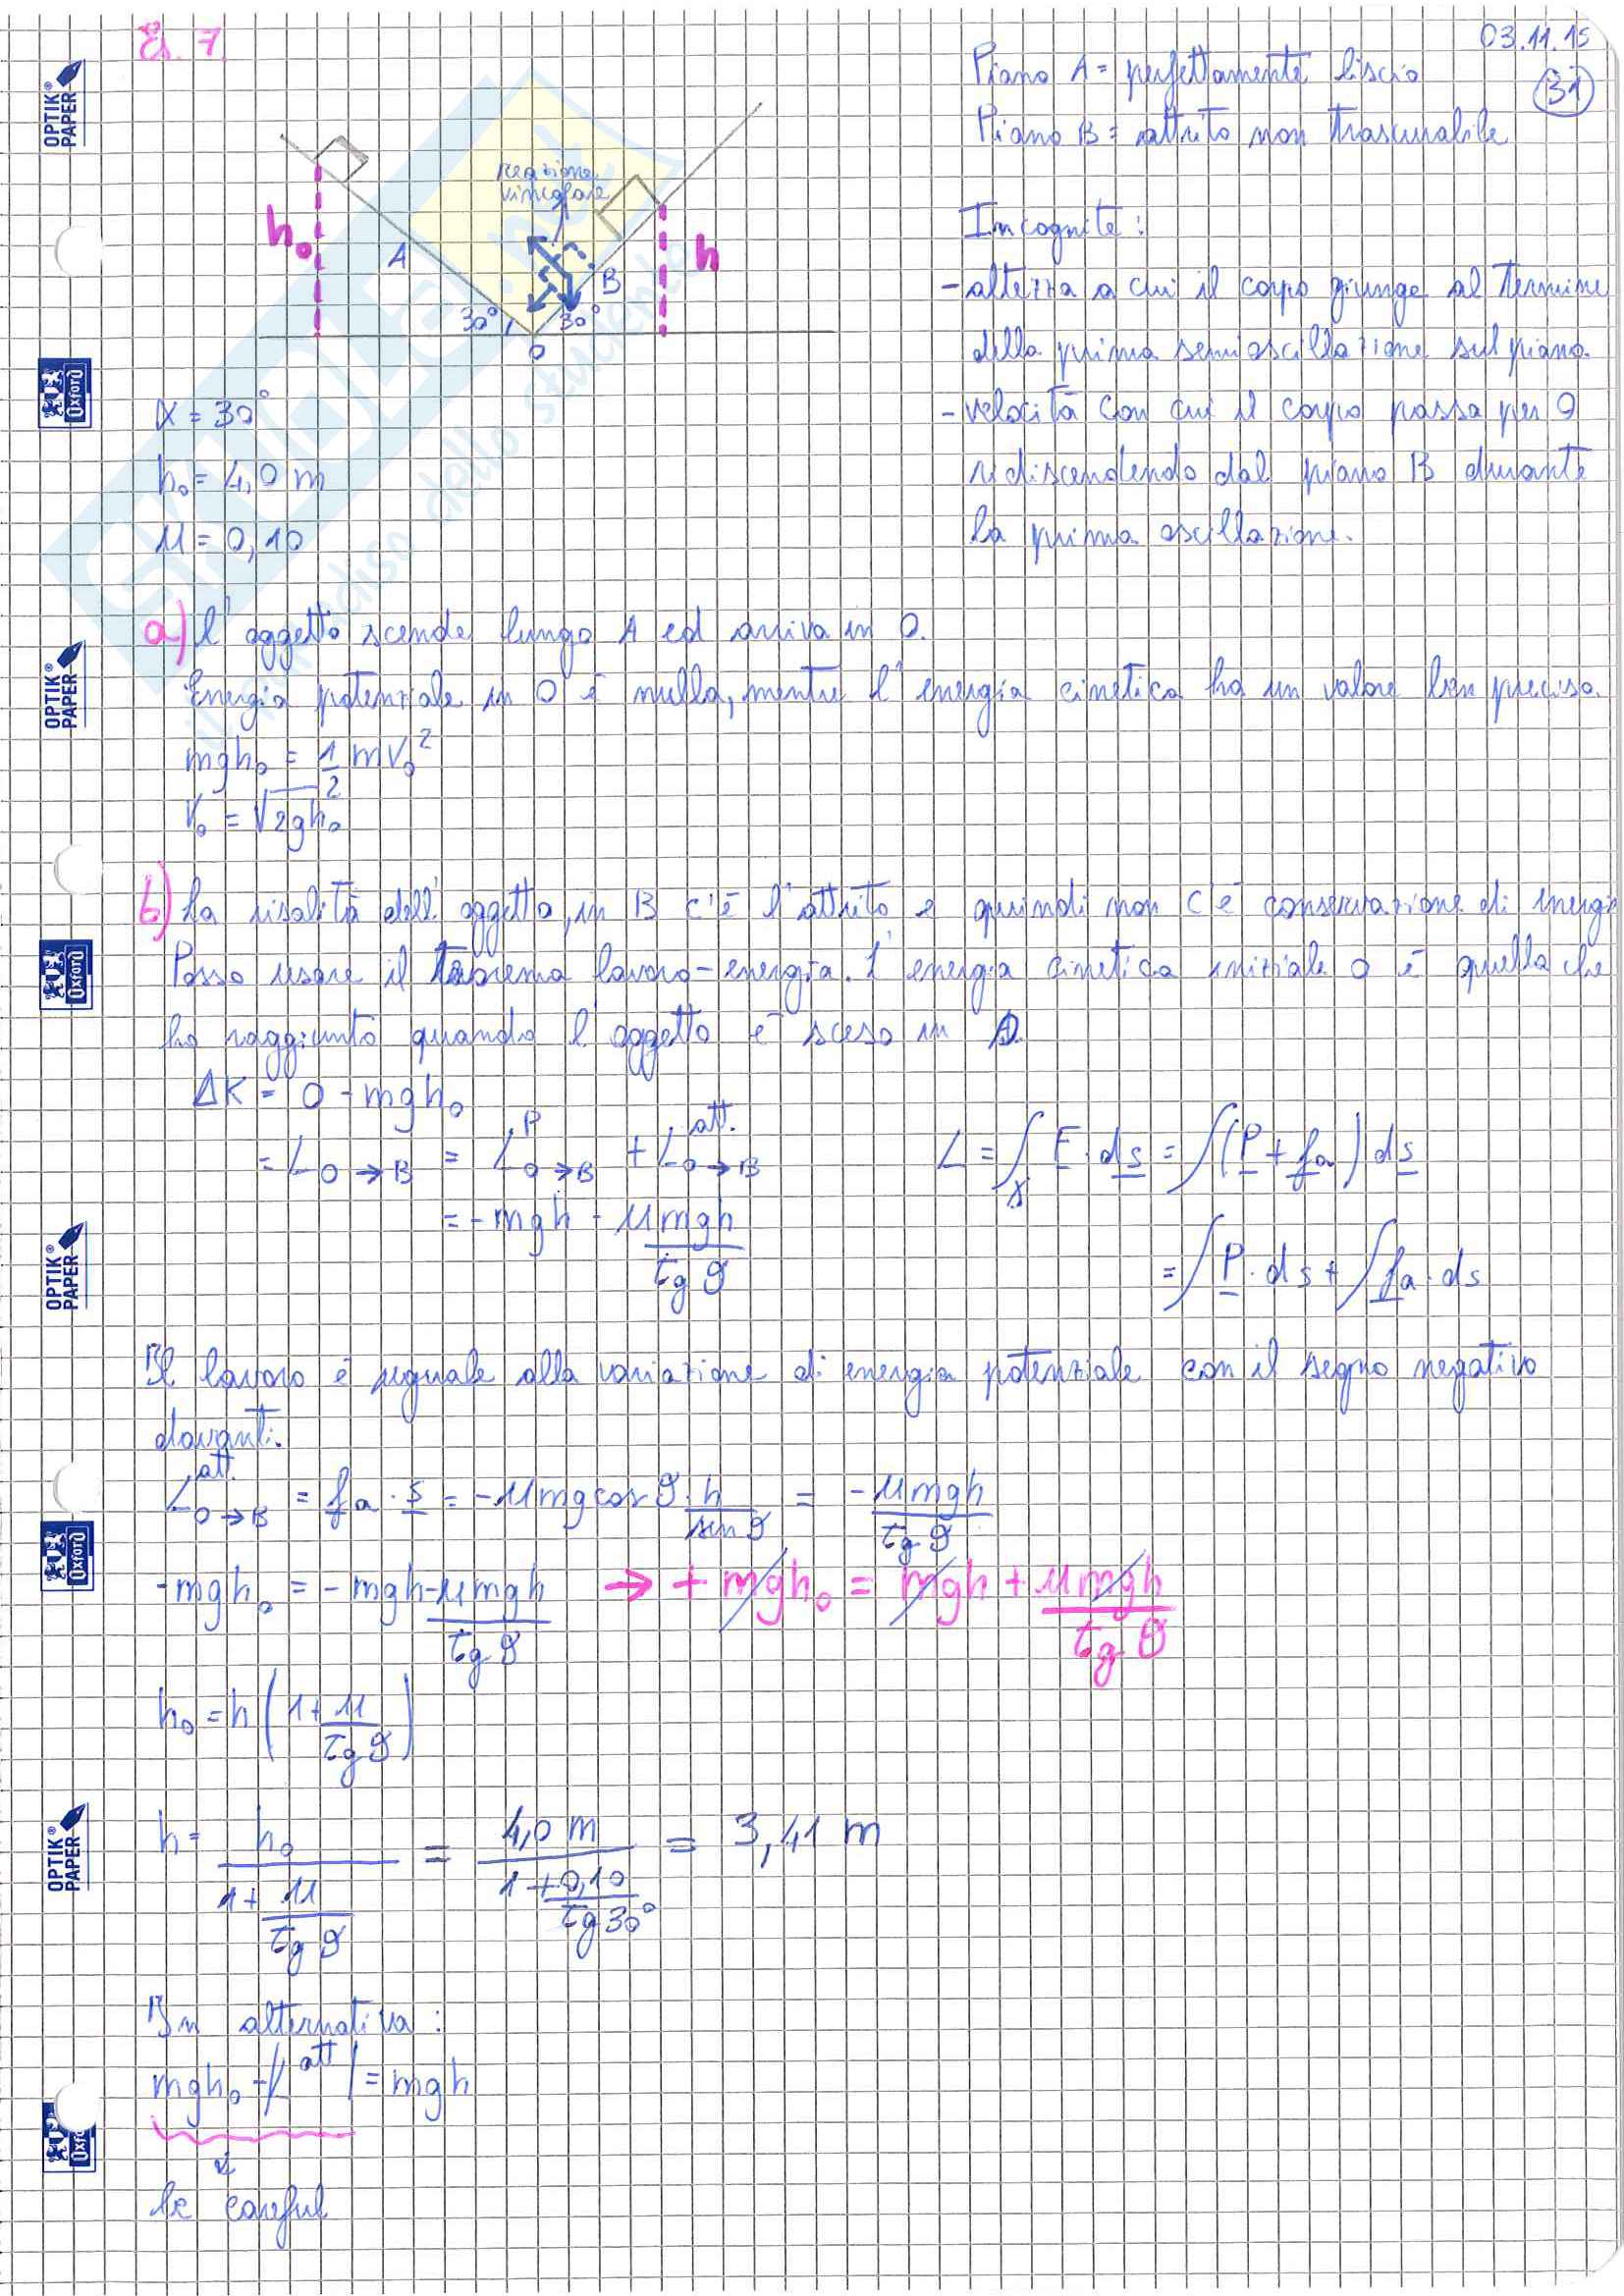 Es. 7
03.11.15
31
Piano A = perfettamente liscio
Piano B = attrito non trascurabile
reazione
vincolare
h₀
A
B
h
30°
30°
O
Incognite:
- altezza a cui il corpo giunge al termine
della prima semioscillazione sul piano.
- velocità con cui il corpo passa per O
ridiscendendo dal piano B durante
la prima oscillazione.
α = 30°
h₀ = 4,0 m
μ = 0,10
a) l'oggetto scende lungo A ed arriva in O.
Energia potenziale in O è nulla, mentre l'energia cinetica ha un valore ben preciso.
mgh₀ = 1/2 mv₀²
V₀ = √2gh₀
b) La risalita dell'oggetto, in B c'è l'attrito e quindi non c'è conservazione di energi
Posso usare il teorema lavoro-energia. L'energia cinetica iniziale O è quella che
ho raggiunto quando l'oggetto è sceso in O.
ΔK = 0 - mgh₀
= L O→B = L^P O→B + L^att. O→B
L = ∫γ F · ds = ∫(P + fa) ds
= -mgh - μmgh/tg θ
= ∫P · ds + ∫fa · ds
Il lavoro è uguale alla variazione di energia potenziale con il segno negativo
davanti.
L^att. O→B = fa · s = -μmg cos θ · h/sen θ = -μmgh/tg θ
-mgh₀ = -mgh - μmgh/tg θ → + mgh₀ = mgh + μmgh/tg θ
h₀ = h (1 + μ/tg θ)
h = h₀/(1 + μ/tg θ) = 4,0 m/(1 + 0,10/tg 30°) = 3,41 m
In alternativa:
mgh₀ - |L^att| = mgh
be careful
OPTIK® PAPER
Oxford
OPTIK® PAPER
Oxford
OPTIK® PAPER
Oxford
OPTIK® PAPER
Oxford